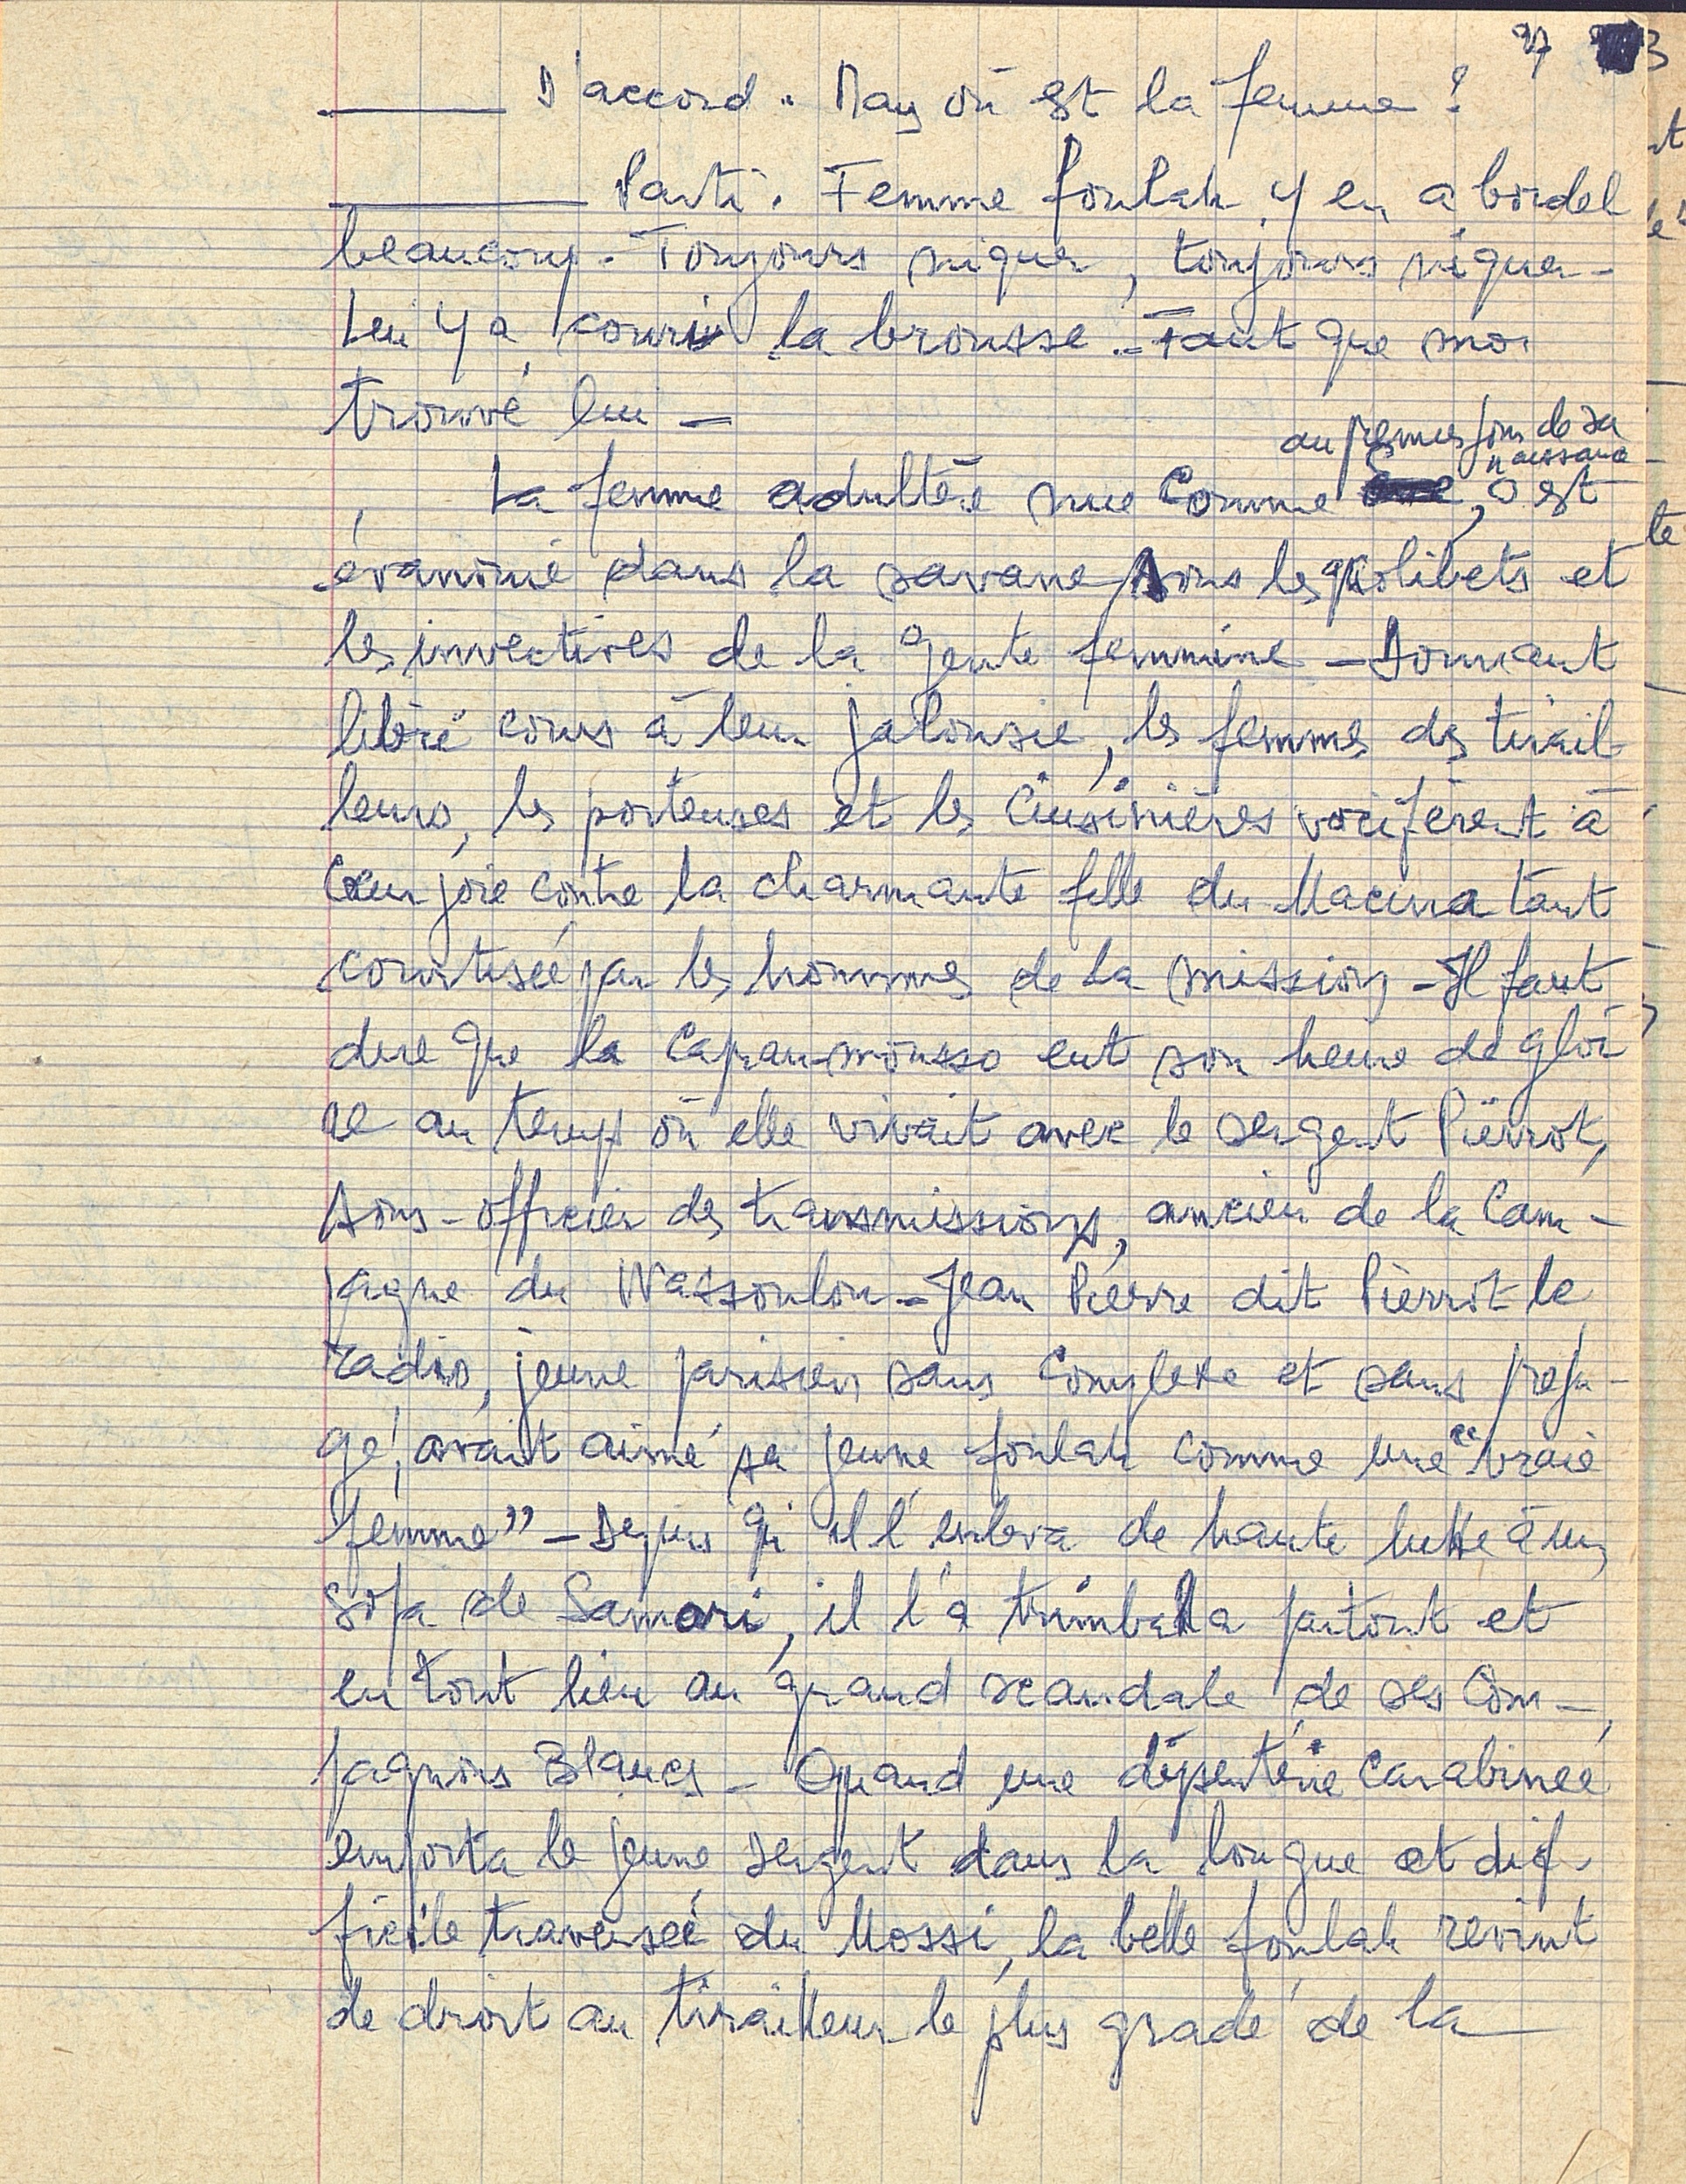 27 3
——— D'accord. Mais où est la femme ?
——— Parti. Femme foulah y en a bordel
beaucoup. Toujours niquer, toujours niquer -
Lui y a couri la brousse - Faut que moi
trouvé lui -
au premier jour de sa
naissance
La femme adultère nue comme , s'est
évanouie dans la savane sous les quolibets et
les invectives de la gente féminine - Donnant
libre cours à leur jalousie, les femmes des tirail
leurs, les porteuses et les cuisinières vocifèrent à
cœur joie contre la charmante fille du Macina tant
courtisée par les hommes de la mission - Il faut
dire que la capran-mousso eut son heure de gloi
re au temps où elle vivait avec le sergent Pierrot,
sous-officier des transmissions, ancien de la Cam-
pagne du Wassoulou - Jean Pierre dit Pierrot le
radio, jeune parisien sans complexe et sans préju-
gé, avait aimé sa jeune foulah comme une "vraie
femme" - Depuis qu'il l'enleva de haute lutte à un
sofa de Samori, il l'a trimballa partout et
en tout lieu au grand scandale de ses Com-
pagnons Blancs - Quand une dysenterie carabinée
emporta le jeune sergent dans la longue et dif
ficile traversée du Mossi, la belle foulah revint
de droit au tirailleur le plus gradé de la